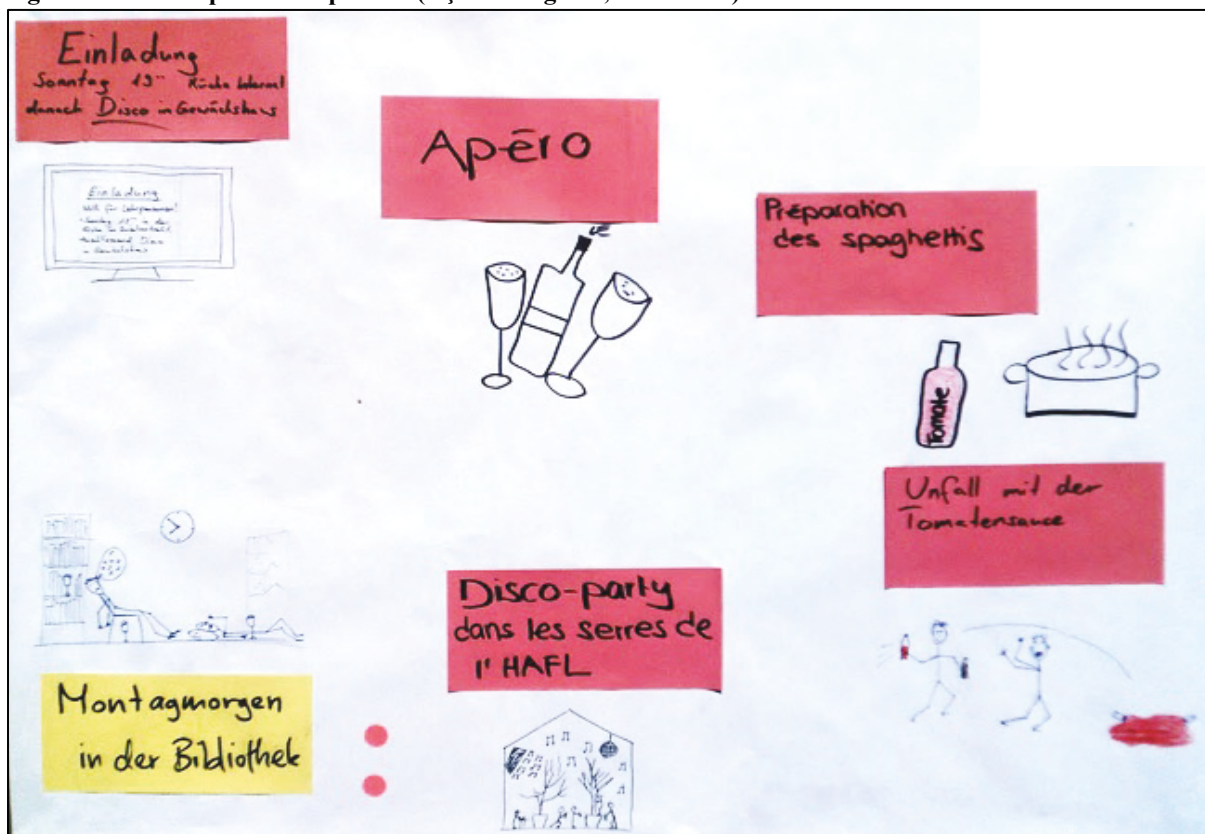 Einladung
Sonntag 19⁰⁰ Küche Internat
danach Disco in Gewächshaus
Einladung
in der
Apéro
Préparation
des spaghettis
Tomate
Unfall mit der
Tomatensauce
Disco-party
dans les serres de
l'HAFL
Montagmorgen
in der Bibliothek